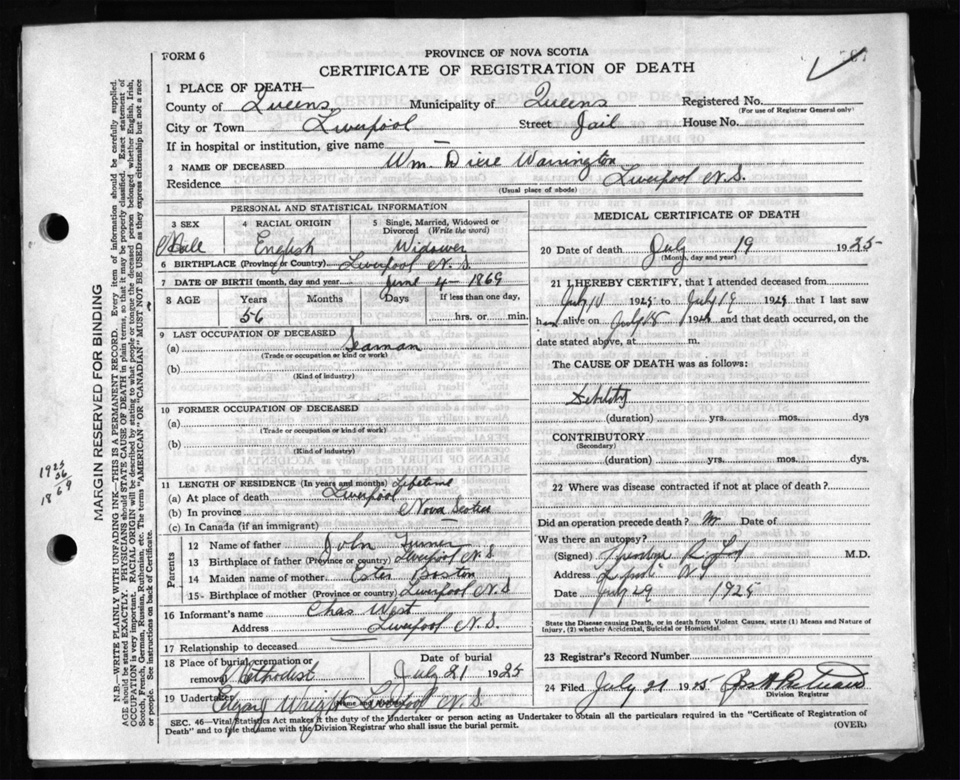 FORM 6
PROVINCE OF NOVA SCOTIA
CERTIFICATE OF REGISTRATION OF DEATH
1 PLACE OF DEATH—
County of Queens Municipality of Queens Registered No.
(For use of Registrar General only)
City or Town Liverpool Street Jail House No.
If in hospital or institution, give name —
2 NAME OF DECEASED Wm. Dixie Warrington
Residence Liverpool N.S.
(Usual place of abode)
PERSONAL AND STATISTICAL INFORMATION
3 SEX 4 RACIAL ORIGIN 5 Single, Married, Widowed or Divorced (Write the word)
Male English Widower
6 BIRTHPLACE (Province or Country) Liverpool N.S.
7 DATE OF BIRTH (month, day and year) June 4 - 1869
8 AGE Years Months Days If less than one day,
56 hrs. or min.
9 LAST OCCUPATION OF DECEASED
(a) Seaman
(Trade or occupation or kind or work)
(b)
(Kind of industry)
10 FORMER OCCUPATION OF DECEASED
(a)
(Trade or occupation or kind of work)
(b)
(Kind of industry)
11 LENGTH OF RESIDENCE (In years and months) Lifetime
(a) At place of death Liverpool
(b) In province Nova Scotia
(c) In Canada (if an immigrant) —
Parents
12 Name of father John
13 Birthplace of father (Province or country) Liverpool N.S
14 Maiden name of mother Ester Boston
15 Birthplace of mother (Province or country) Liverpool N.S
16 Informant's name Chas West
Address Liverpool N.S.
17 Relationship to deceased
18 Place of burial, cremation or removal Methodist Date of burial July 21 1925
19 Undertaker Wright Liverpool N.S.
(Name and Address)
MEDICAL CERTIFICATE OF DEATH
20 Date of death July 19 1925
(Month, day and year)
21 I HEREBY CERTIFY, that I attended deceased from
July 10 1925 to July 19 1925 that I last saw
him alive on July 18 1925 and that death occurred, on the
date stated above, at m.
The CAUSE OF DEATH was as follows:
Debility
(duration) yrs. mos. dys
CONTRIBUTORY
(Secondary)
(duration) yrs. mos. dys.
22 Where was disease contracted if not at place of death?
Did an operation precede death? No Date of
Was there an autopsy?
(Signed) M.D.
Address N S
Date July 29 1925
State the Disease causing Death, or in death from Violent Causes, state (1) Means and Nature of Injury, (2) whether Accidental, Suicidal or Homicidal.
23 Registrar's Record Number
24 Filed July 21 1925
Division Registrar
SEC. 46—Vital Statistics Act makes it the duty of the Undertaker or person acting as Undertaker to obtain all the particulars required in the "Certificate of Registration of
Death" and to file the same with the Division Registrar who shall issue the burial permit. (OVER)
MARGIN RESERVED FOR BINDING
N.B.—WRITE PLAINLY WITH UNFADING INK—THIS IS A PERMANENT RECORD. Every item of information should be carefully supplied.
AGE should be stated EXACTLY. PHYSICIANS should STATE CAUSE OF DEATH in plain terms, so that it may be properly classified. Exact statement of
OCCUPATION is very important. RACIAL ORIGIN will be described by stating to what people or tongue the deceased person belonged whether English, Irish,
Scotch, French, German, Russian, Ruthenian, etc. The terms "AMERICAN" OR "CANADIAN" MUST NOT BE USED as they express citizenship but not a race
or people. See instructions on back of Certificate.
1925
56
1869